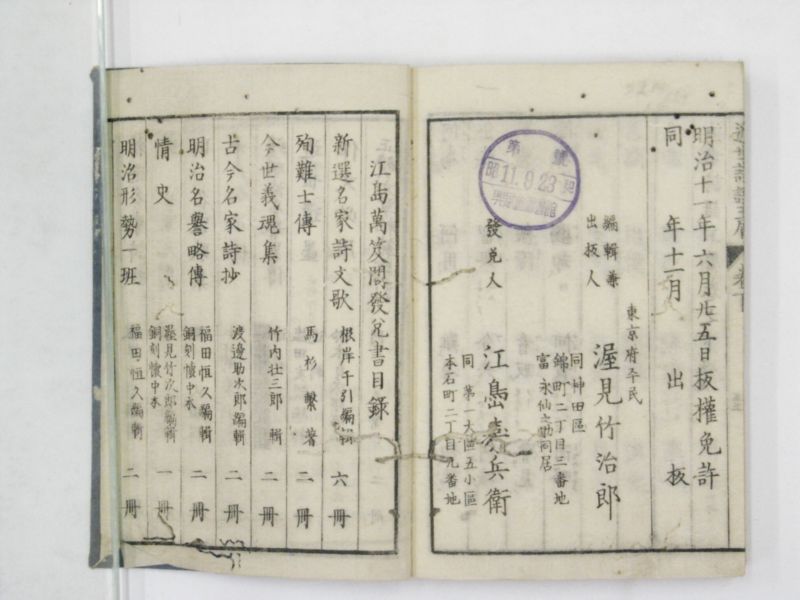 明治十一年六月廿五日板權免許
同年十一月出板
東京府平民
編輯兼
出板人
渥見竹治郎
同神田區
錦町二丁目三番地
發兌人
江島嘉兵衛
同第一大區五小區
本石町二丁目九番地
11.9.23
江島萬笈閣發兌書目録
新選名家詩文歌 根岸千引編輯 六冊
殉難士傳 馬杉繋著 二冊
今世義魂集 竹内壮三郎輯 二冊
古今名家詩抄 渡邊助次郎編輯 二冊
明治名譽略傳 福田恒久編輯 銅刻懐中本 二冊
情史 渥見竹次郎編輯 銅刻懐中本 一冊
明治形勢一班 福田恒久編輯 二冊